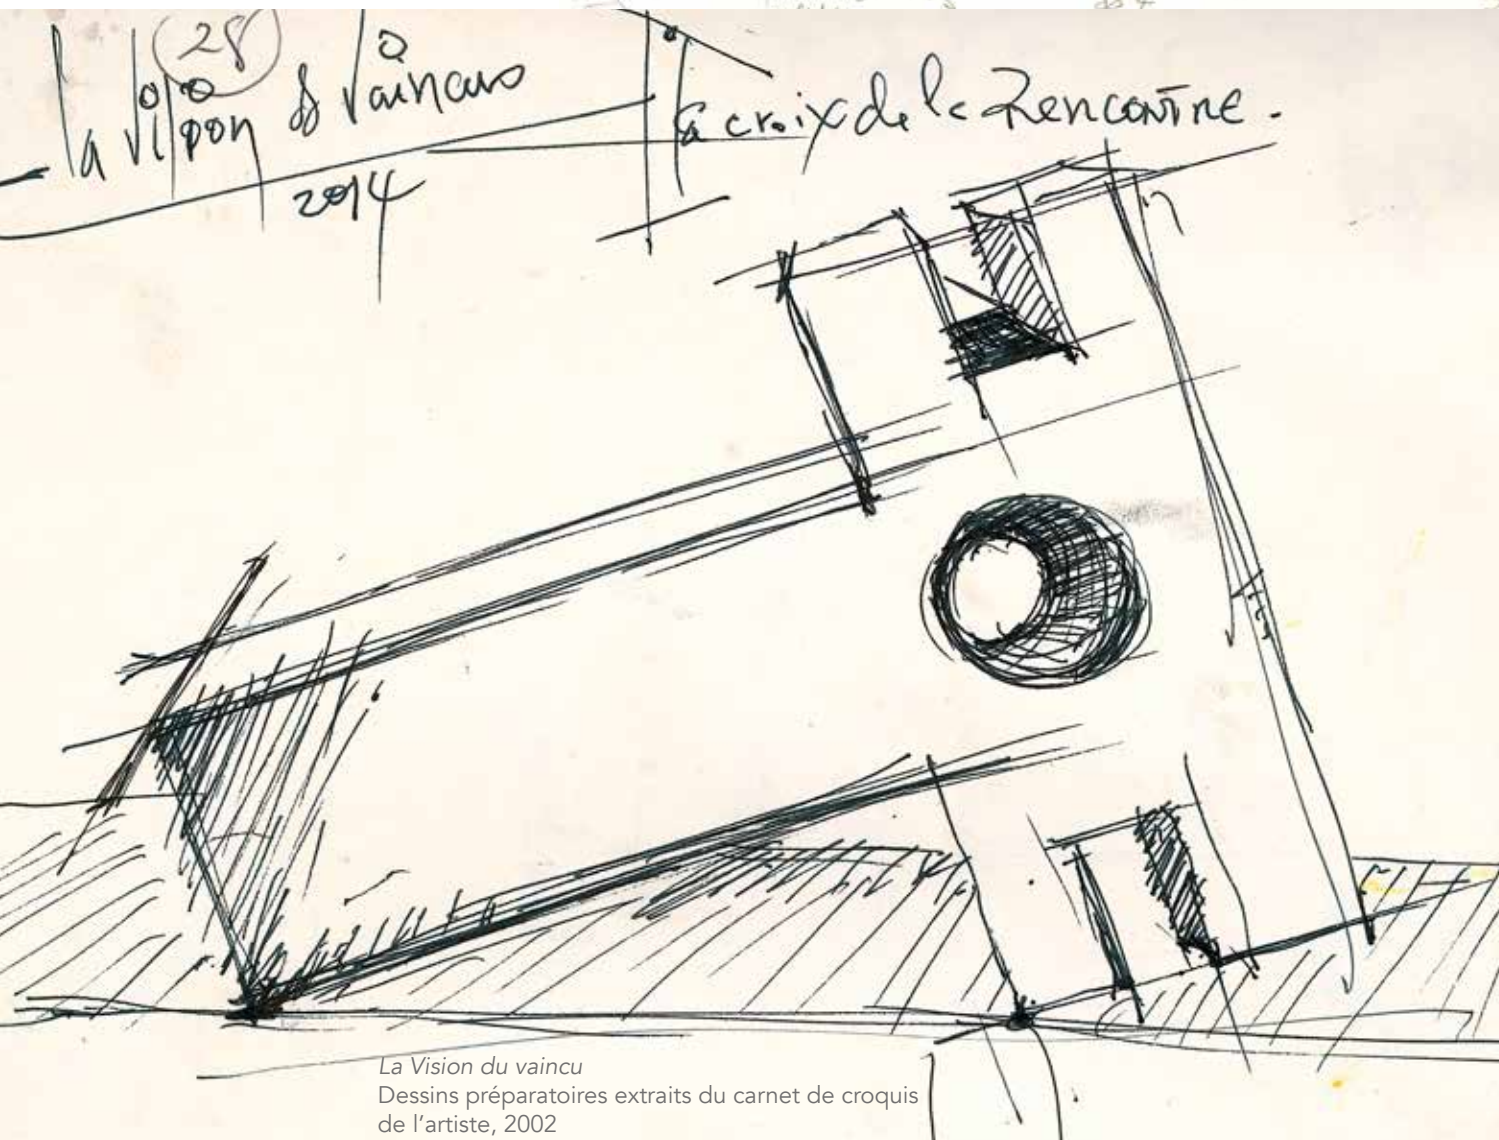 28
la Vision & Vaincus
2014
la croix de la Rencontre.
La Vision du vaincu
Dessins préparatoires extraits du carnet de croquis
de l'artiste, 2002